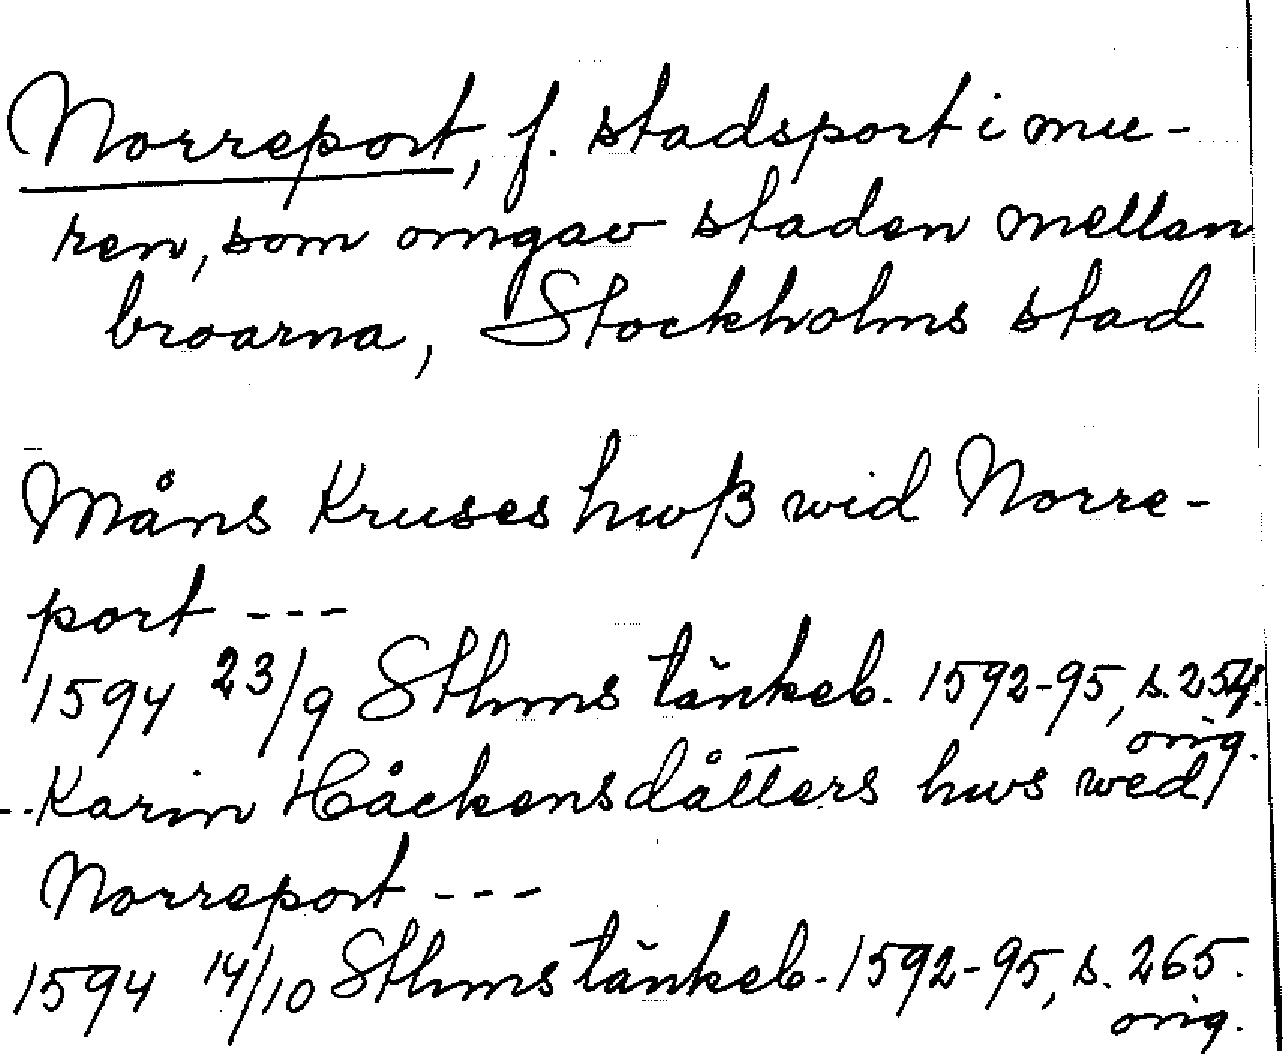 Norreport, f. stadsport i mu-
ren, som omgav staden mellan
broarna, Stockholms stad
Måns Kruses hwß wid Norre-
port ---
1594 23/9 Sthms tänkeb. 1592-95, s.
orig.
--Karin Håckensdåtters hws wed
Norreport ---
1594 14/10 Sthms tänkeb. 1592-95, s. 265.
orig.